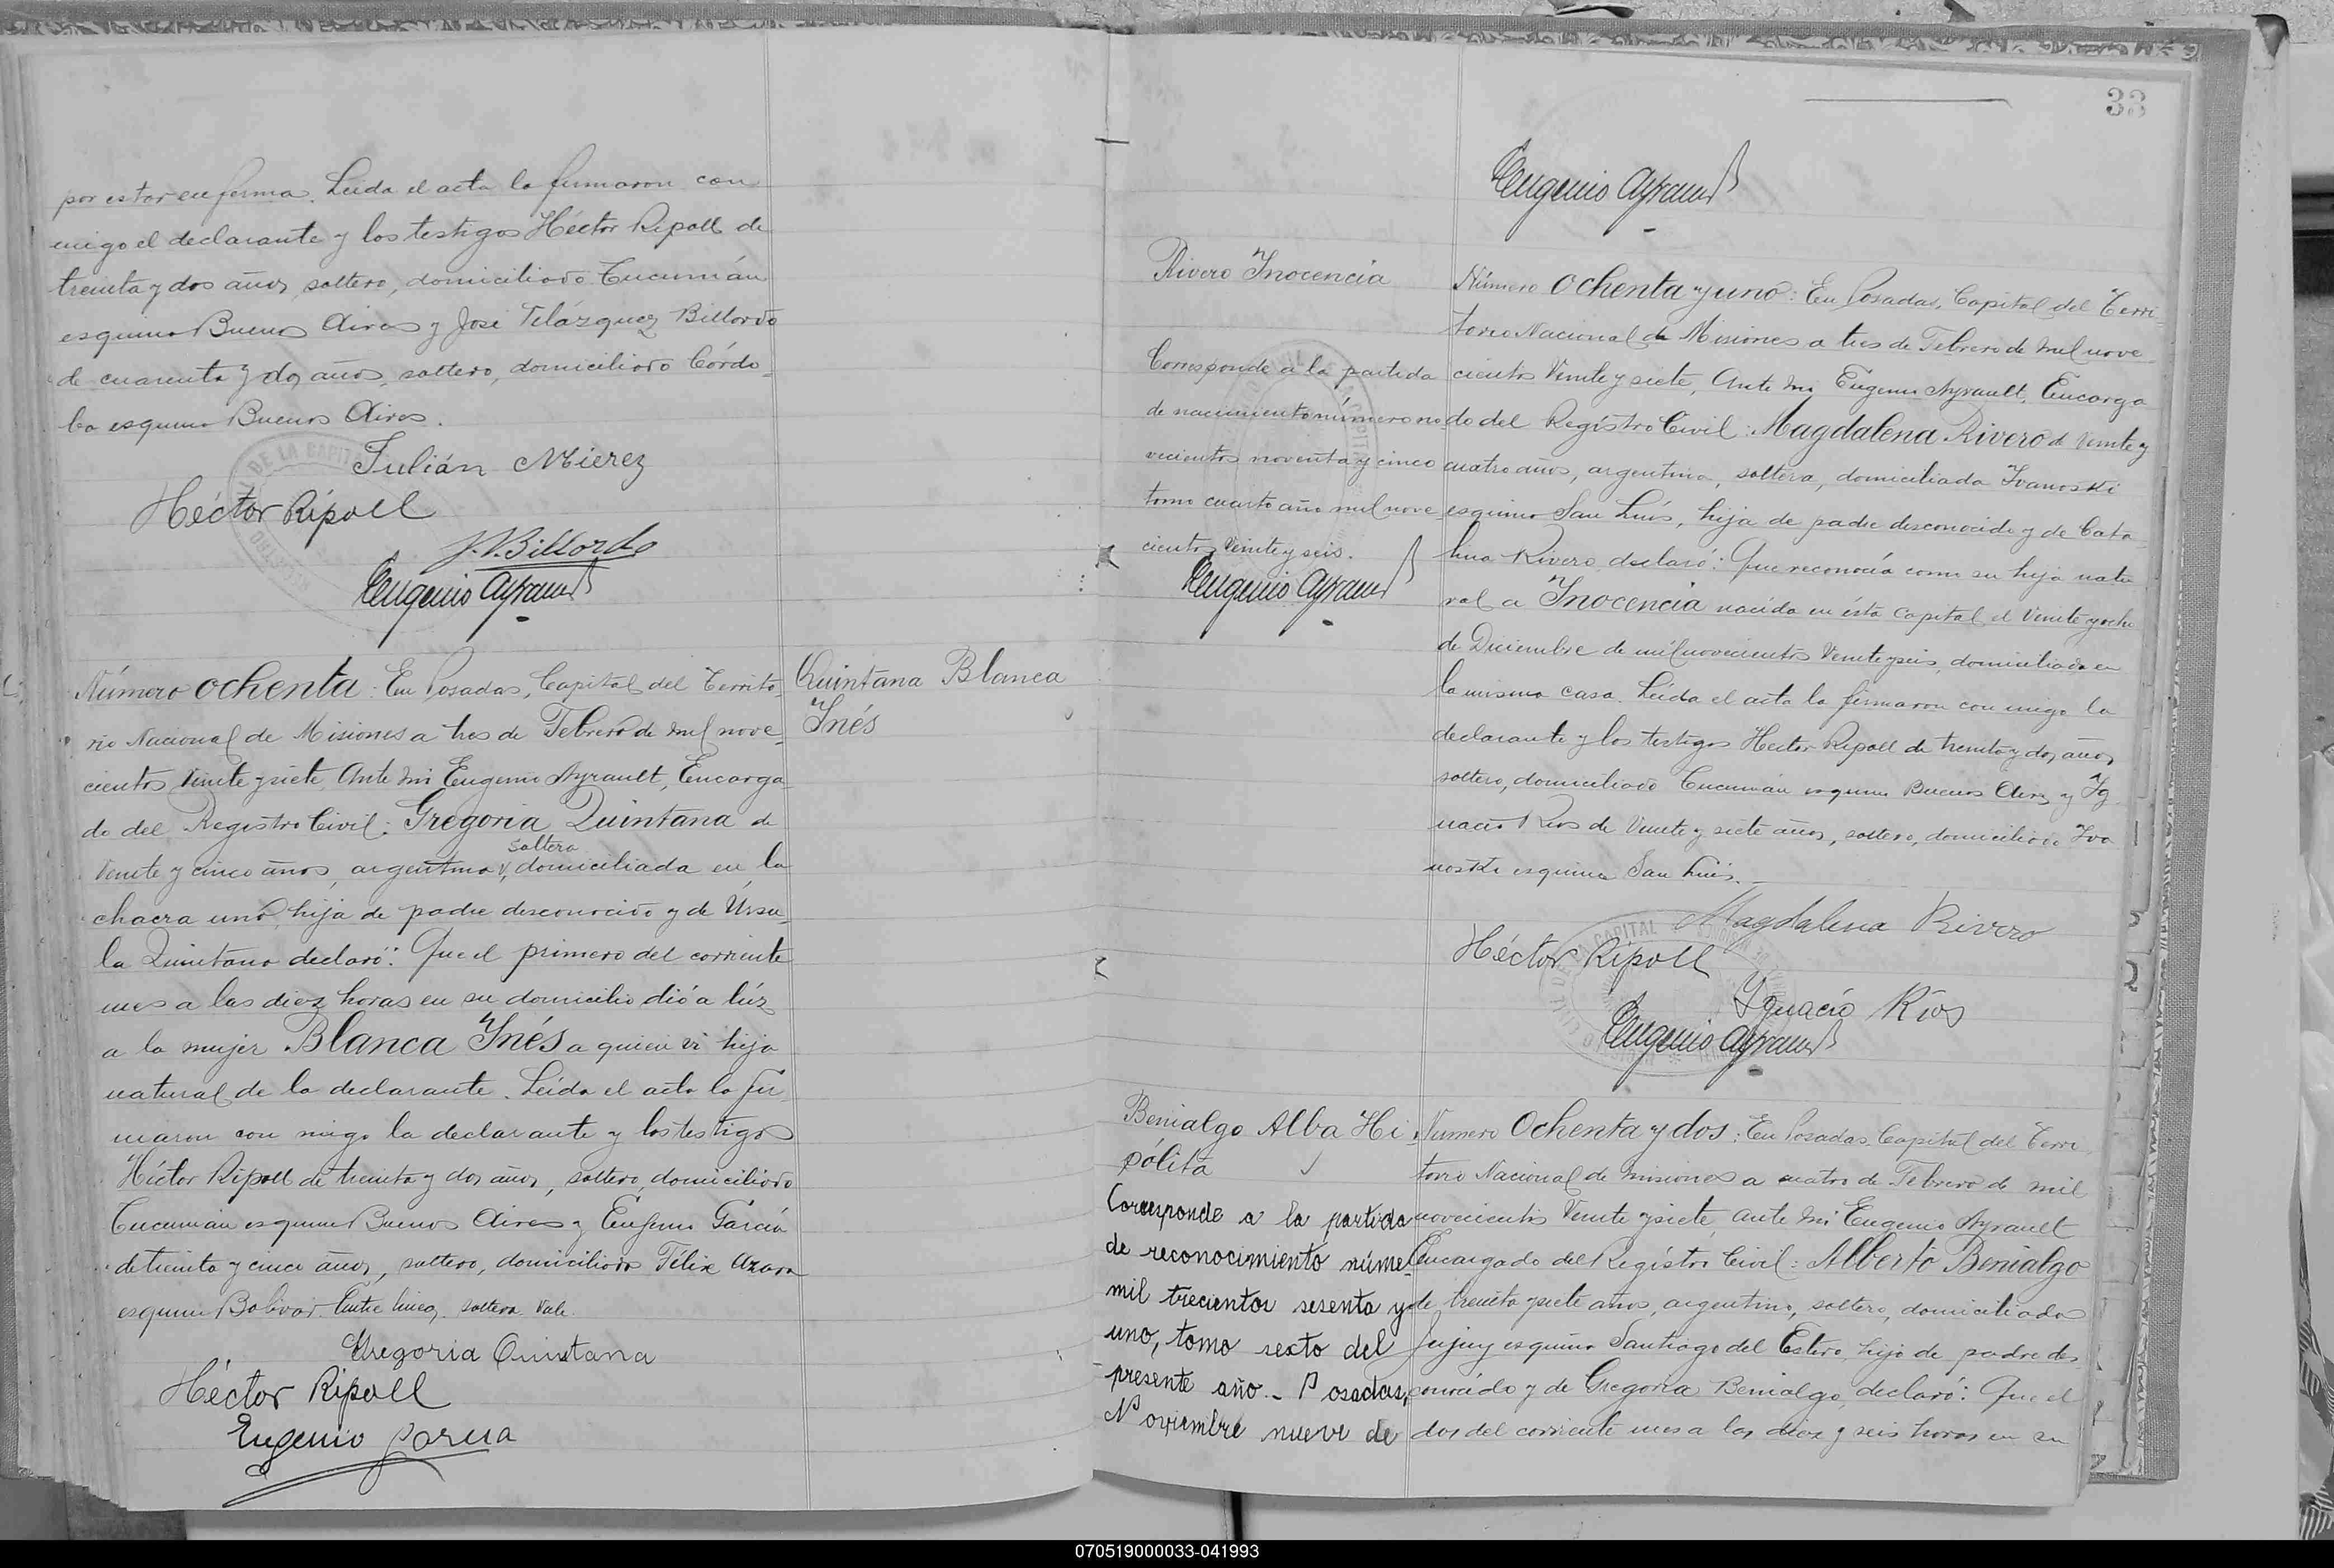 por estar enferma. Leída el acta la firmaron con
migo el declarante y los testigos Héctor Ripoll de
treinta y dos años, soltero, domiciliado Tucumán
esquina Buenos Aires y José Velázquez Billordo
de cuarenta y dos años, soltero, domiciliado Córdo_
ba esquina Buenos Aires.
Julián Mierez
Héctor Ripoll
J.V.Billordo
Eugenio Ayrault
Número ochenta: En Posadas, Capital del Territo_
rio Nacional de Misiones a tres de Febrero de mil nove_
cientos veinte y siete, Ante mi Eugenio Ayrault, Encarga_
do del Registro Civil: Gregoria Quintana de
soltera
veinte y cinco años, argentina v, domiciliada en la
chacra uno, hija de padre desconocido y de Ursu_
la Quintana declaró: Que el primero del corriente
mes a las diez horas en su domicilio dió a lúz
a la mujer Blanca Inés a quien vi hija
natural de la declarante. Leída el acta la fir_
maron con migo la declarante y los testigos
Héctor Ripoll de treinta y dos años, soltero, domiciliado
Tucumán esquina Buenos Aires y Eugenio García
de treinta y cinco años, soltero, domiciliado Félix Azara
esquina Bolívar. Entre línea, soltera. Vale.
Gregoria Quintana
Héctor Ripoll
Eugenio Garcia
Quintana Blanca
Inés
33
Eugenio Ayrault
Rivero Inocencia
Corresponde a la partida
de nacimiento número no
vecientos noventa y cinco
tomo cuarto año mil nove
cientos veinte y seis.
Eugenio Ayrault
Número Ochenta y uno: En Posadas, Capital del Terri_
torio Nacional de Misiones a tres de Febrero de mil nove_
cientos veinte y siete, Ante mi Eugenio Ayrault, Encarga_
do del Registro Civil: Magdalena Rivero de veinte y
cuatro años, argentina, soltera, domiciliada Ivanoski
esquina San Luís, hija de padre desconocido y de Cata_
lina Rivero declaró: Que reconocía como su hija natu
ral a Inocencia nacida en ésta capital el veinte y ocho
de Diciembre de mil novecientos veinte y seis, domiciliada en
la misma casa. Leída el acta la firmaron con migo la
declarante y los testigos Hector Ripoll de treinta y dos años,
soltero, domiciliado Tucumán esquina Buenos Aires y Ig_
nacio Rios de veinte y siete años, soltero, domiciliado Iva
noski esquina San Luis._
Magdalena Rivero
Héctor Ripoll
Ignacio Ríos
Eugenio Ayrault
Benialgo Alba Hi
pólita
Corresponde a la partida
de reconocimiento núme_
mil trecientos sesenta y
uno, tomo sexto del
presente año._ Posadas,
Noviembre nueve de
Numero Ochenta y dos: En Posadas, Capital del Terri_
torio Nacional de Misiones a cuatro de Febrero de mil
novecientos veinte y siete, ante mi Eugenio Ayrault
Encargado del Registro Civil: Alberto Benialgo
de treinta y siete años, argentino, soltero, domiciliado
Jujuy esquina Santiago del Estero, hijo de padre des
conocido y de Gregoria Benialgo, declaró: Que el
dos del corriente mes a las diez y seis horas en su
070519000033-041993